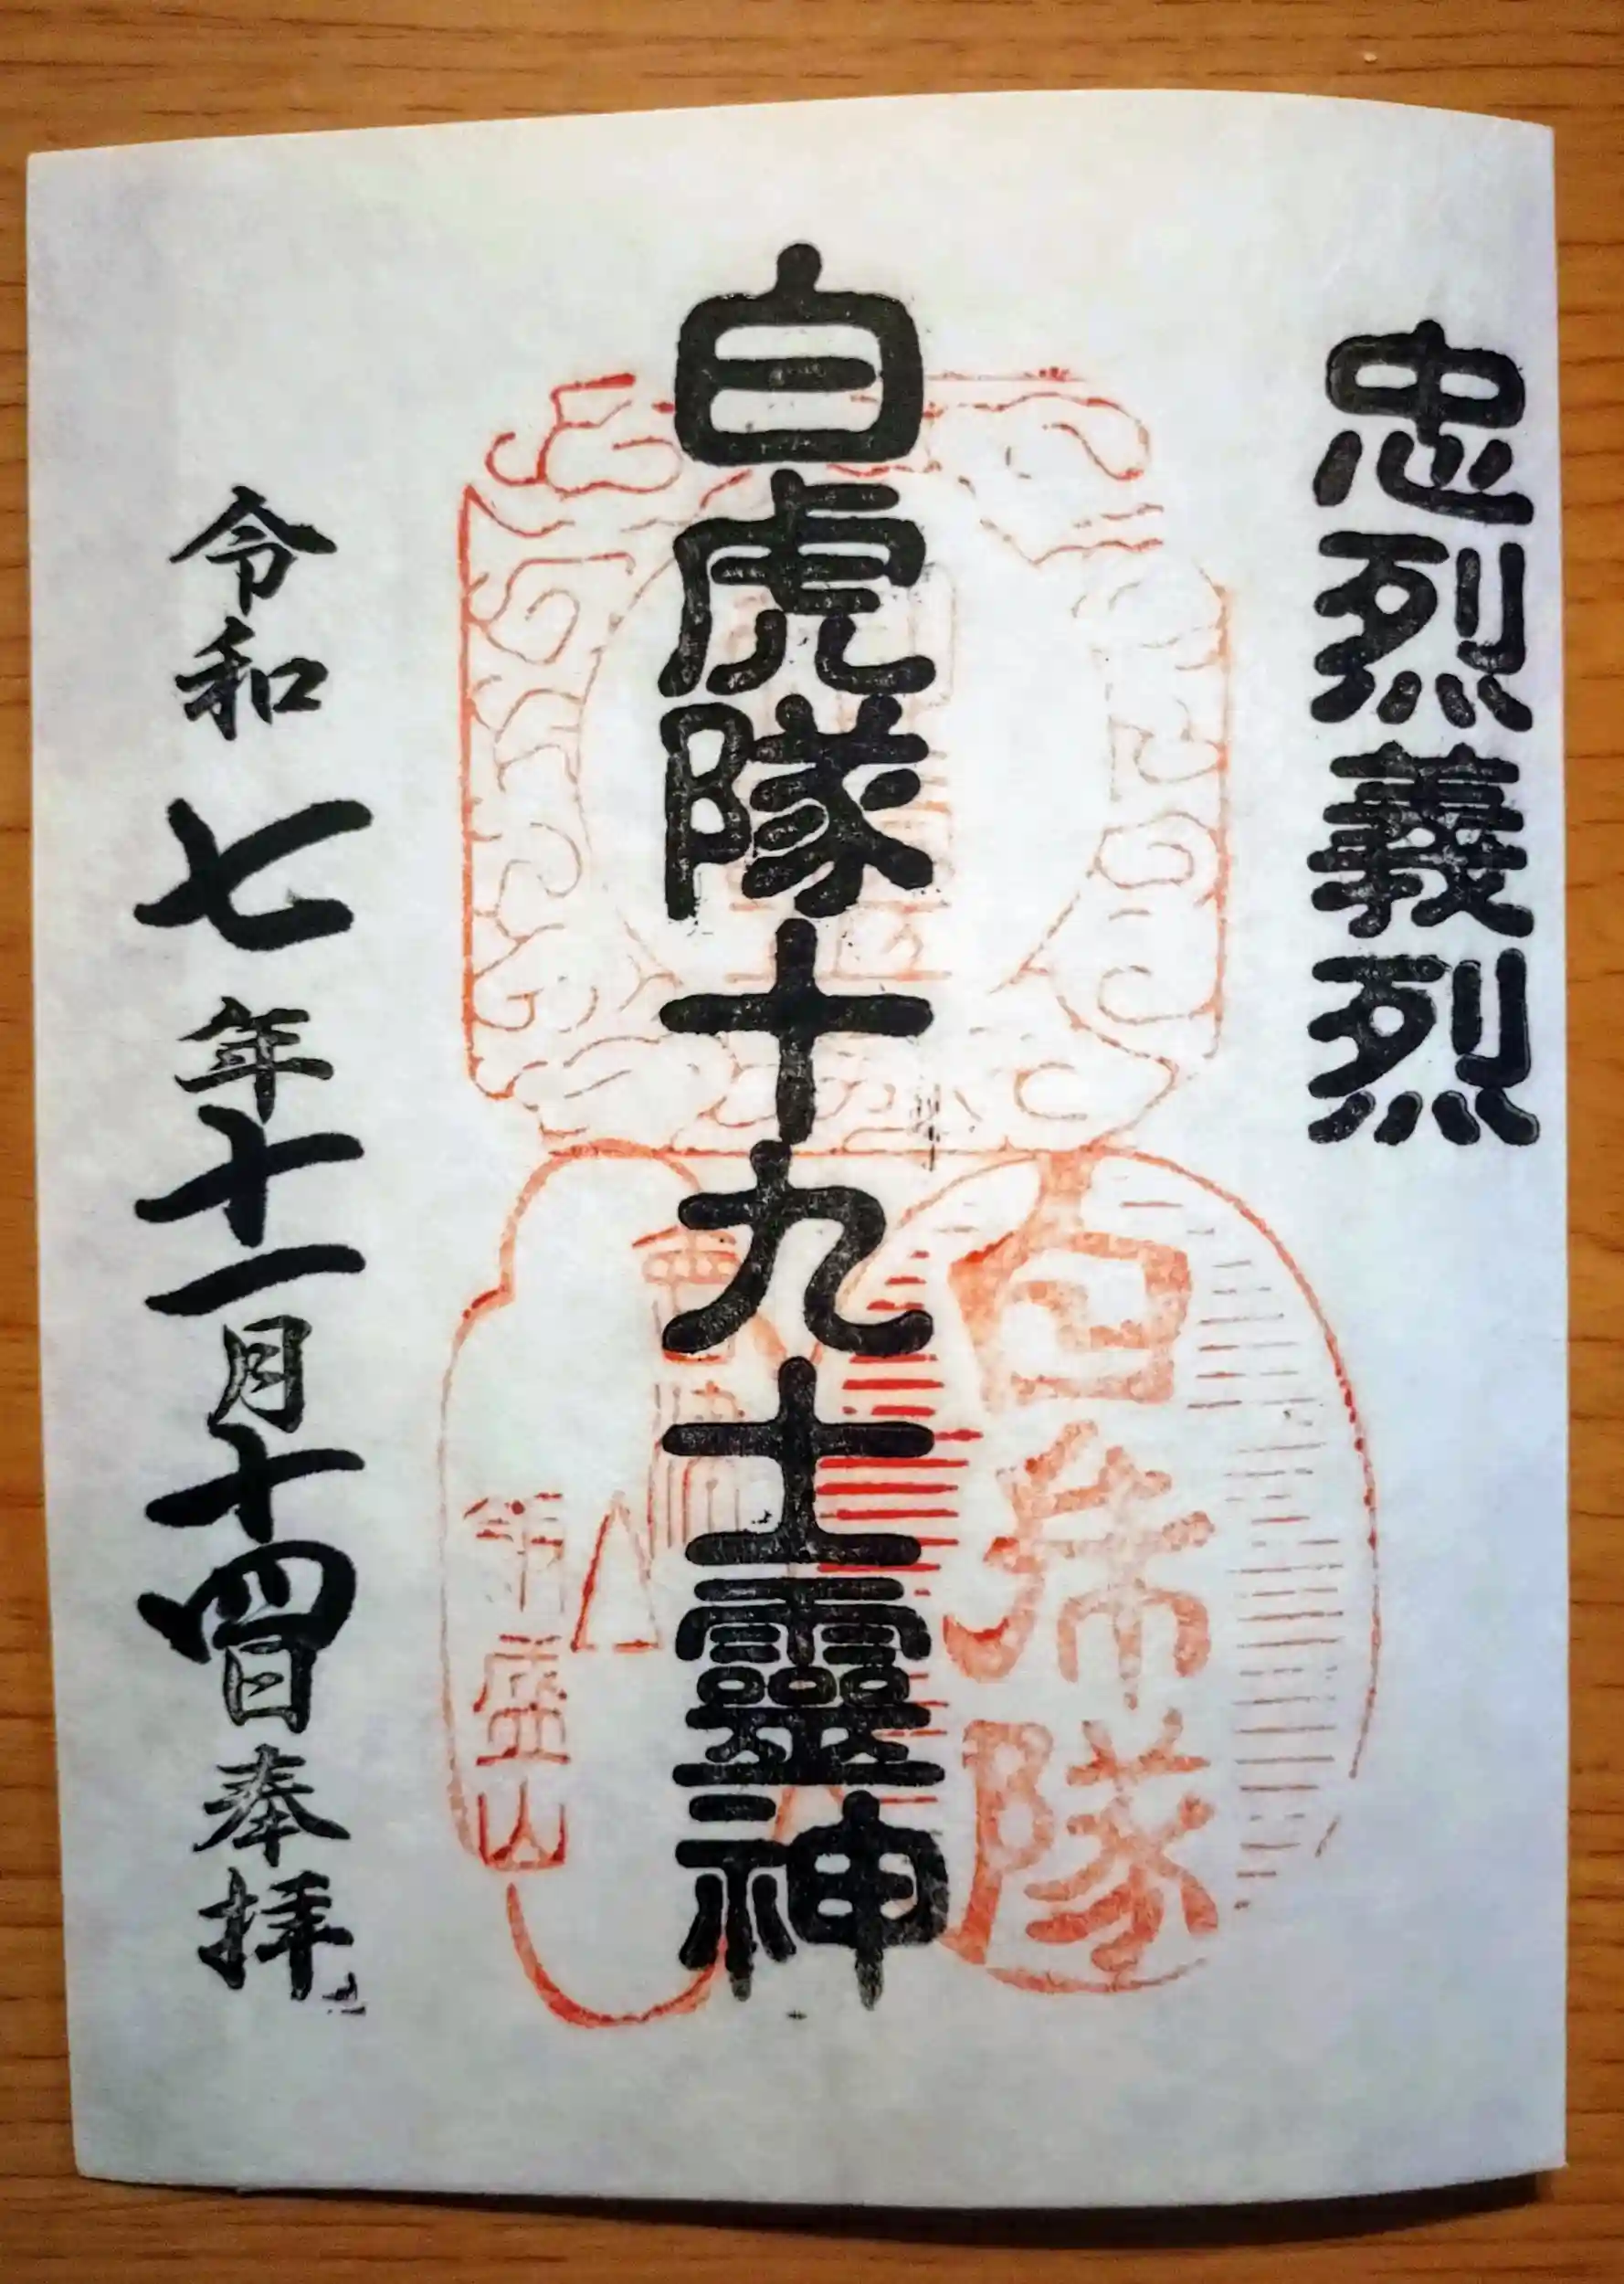 忠烈義烈
白虎隊十九士靈神
白虎隊
飯盛山
令和七年十一月十四日奉拝